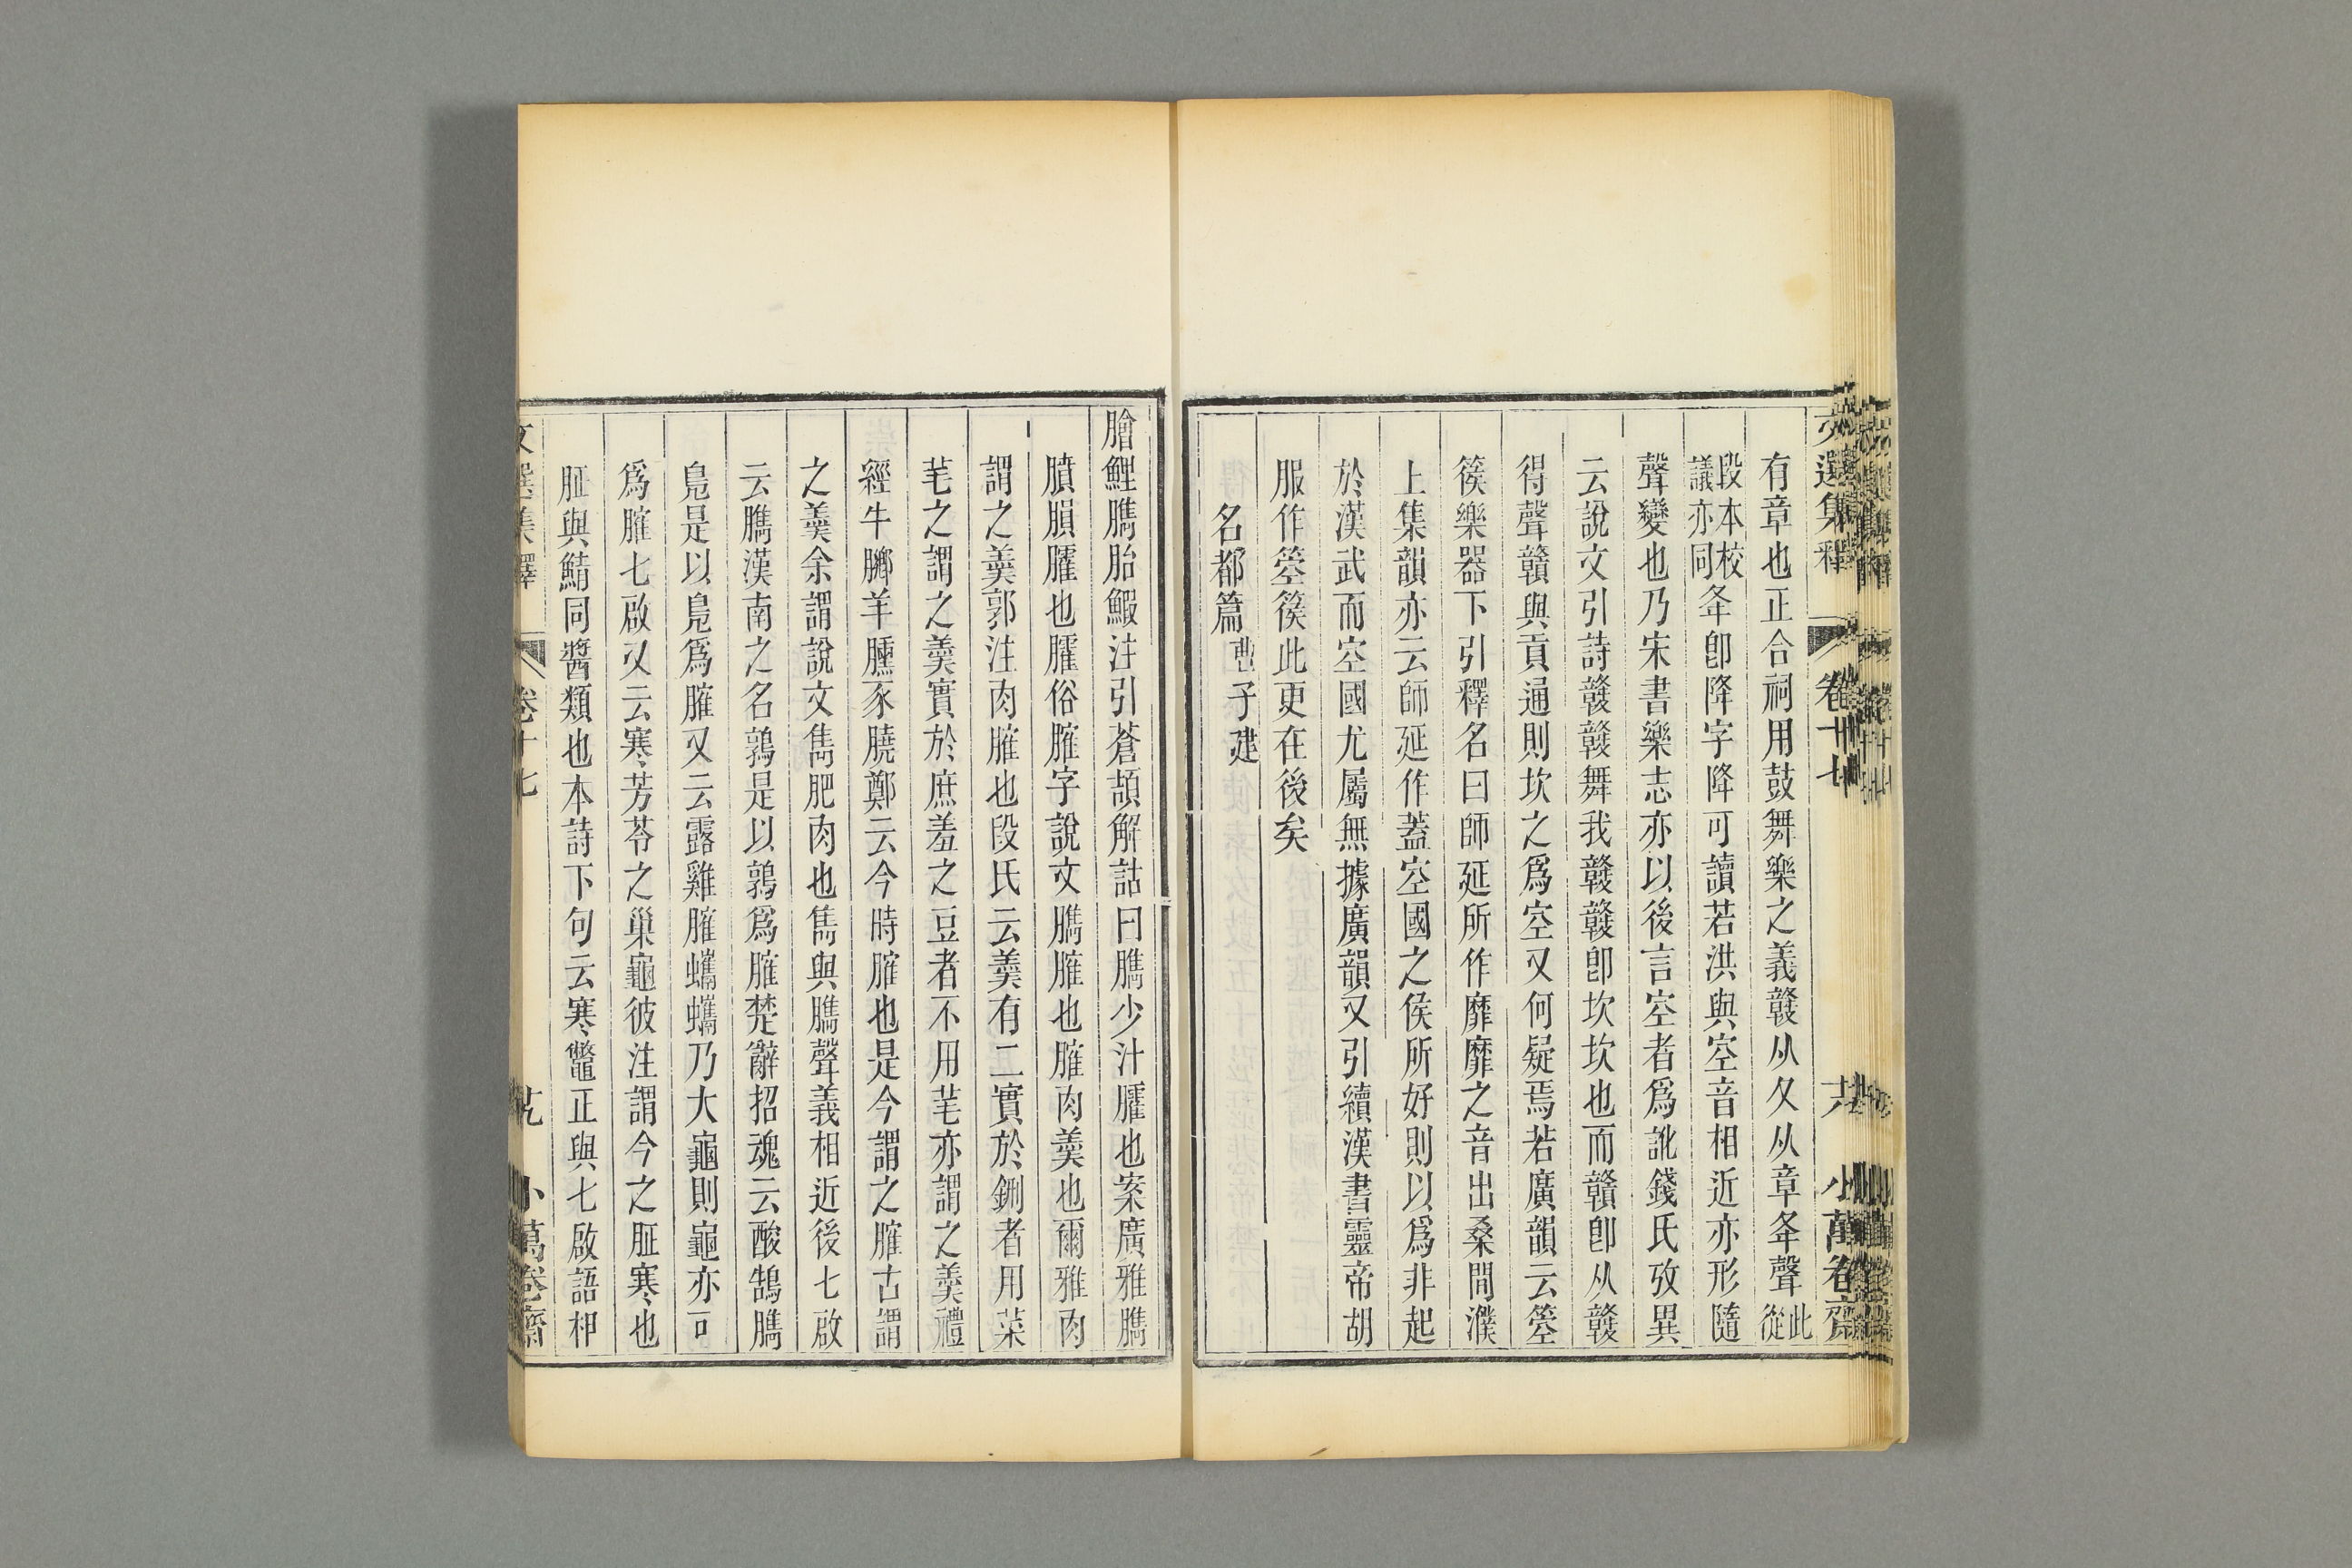 文選集釋 卷十七 小萬卷齋
有章也正合祠用鼓舞樂之義竷从夂从章夅聲此從
段本校議亦同夅卽降字降可讀若洪與空音相近亦形隨
聲變也乃宋書樂志亦以後言空者爲訛錢氏攷異
云說文引詩竷竷舞我竷竷卽坎坎也而贛卽从竷
得聲贛與貢通則坎之爲空又何疑焉若廣韻云箜
篌樂器下引釋名曰師延所作靡靡之音出桑間濮
上集韻亦云師延作蓋空國之侯所好則以爲非起
於漢武而空國尤屬無據廣韻又引續漢書靈帝胡
服作箜篌此更在後矣
名都篇 曹子建
膾鯉臇胎鰕注引蒼頡解詁曰臇少汁臛也案廣雅臇
膹䐣臛也臛俗脽字說文臇脽也脽肉羹也爾雅肉
謂之羹郭注肉脽也段氏云羹有二實於鉶者用菜
芼之謂之羹實於庶羞之豆者不用芼亦謂之羹禮
經牛膷羊臐豕膮鄭云今時脽也是今謂之脽古謂
之羹余謂說文雋肥肉也雋與臇聲義相近後七啟
云臇漢南之名鶉是以鶉爲脽楚辭招魂云酸鵠臇
鳧是以鳧爲脽又云露雞脽蠵蠵乃大龜則龜亦可
爲脽七啟又云寒芳苓之巢龜彼注謂今之䏰寒也
䏰與鯖同醬類也本詩下句云寒鼈正與七啟語相
文選集釋 卷十七 小萬卷齋